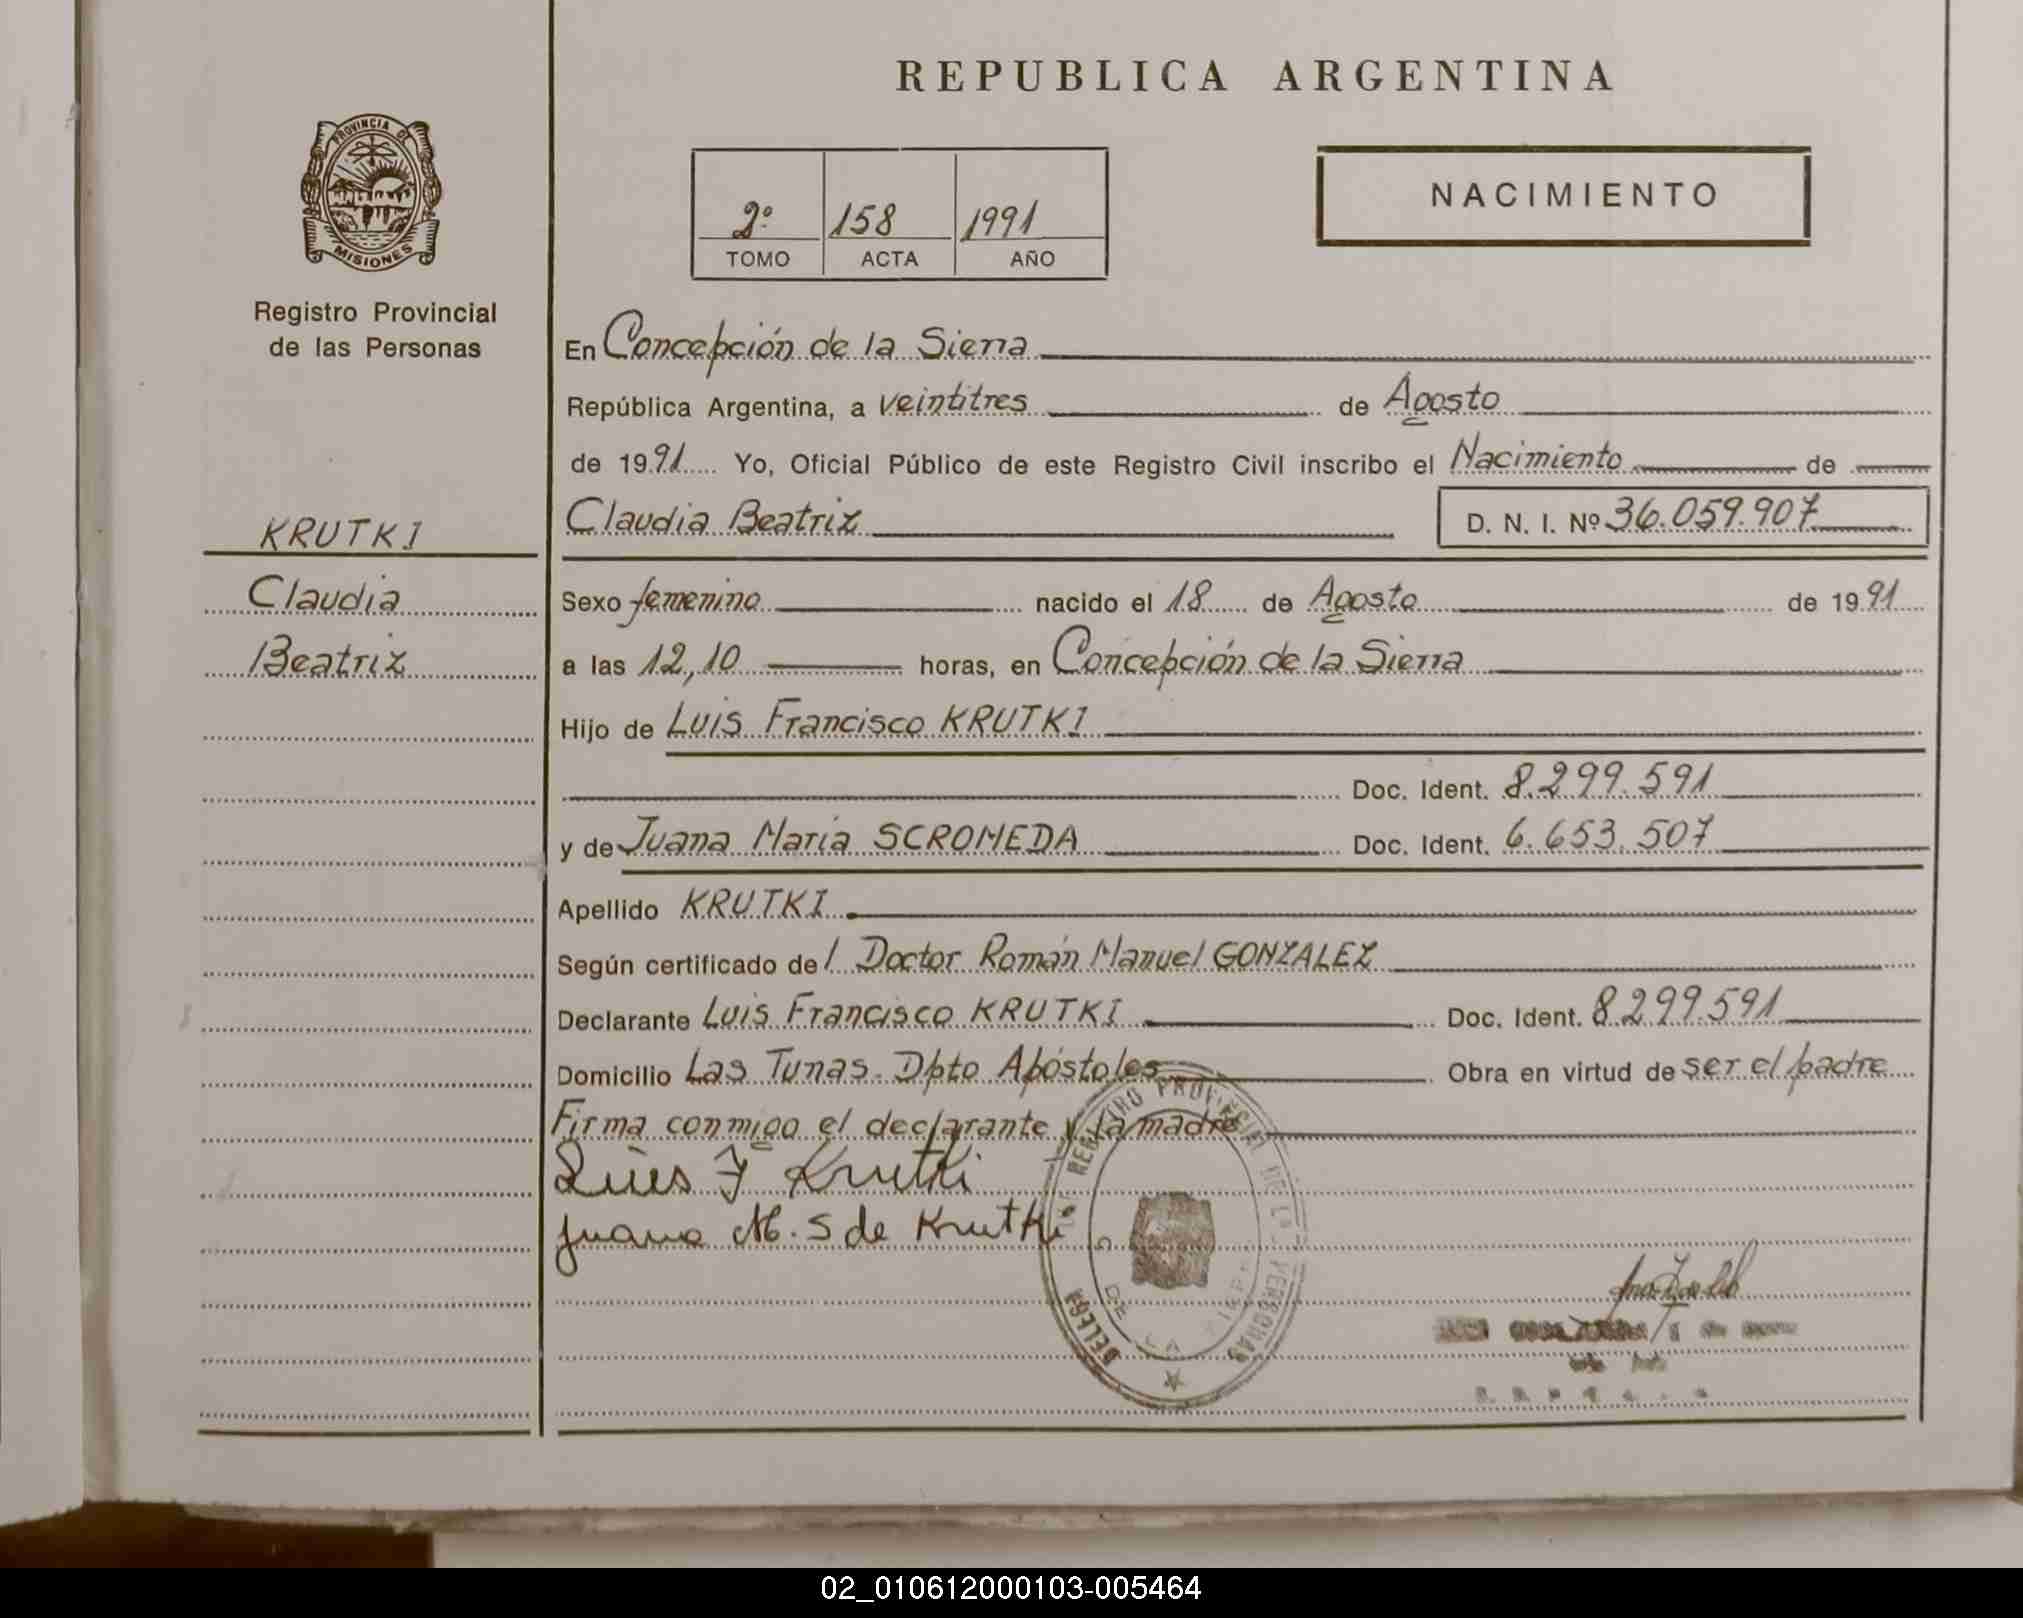 REPUBLICA ARGENTINA
PROVINCIA DE
MISIONES
Registro Provincial
de las Personas
2º 158 1991
TOMO ACTA AÑO
NACIMIENTO
En Concepción de la Sierra
República Argentina, a veintitres de Agosto
de 1991 Yo, Oficial Público de este Registro Civil inscribo el Nacimiento de
Claudia Beatriz D. N. I. Nº 36.059.907
KRUTKI
Claudia
Beatriz
Sexo femenino nacido el 18 de Agosto de 1991
a las 12,10 horas, en Concepción de la Sierra
Hijo de Luis Francisco KRUTKI
Doc. Ident. 8.299.591
y de Juana Maria SCROMEDA Doc. Ident. 6.653.507
Apellido KRUTKI
Según certificado del Doctor Román Manuel GONZALEZ
Declarante Luis Francisco KRUTKI Doc. Ident. 8.299.591
Domicilio Las Tunas. Dpto Apóstoles Obra en virtud de ser el padre
Firma conmigo el declarante y la madre
Luis F Krutki
Juana M. S de Krutki
REGISTRO PROVINCIAL DE LAS PERSONAS
02_010612000103-005464